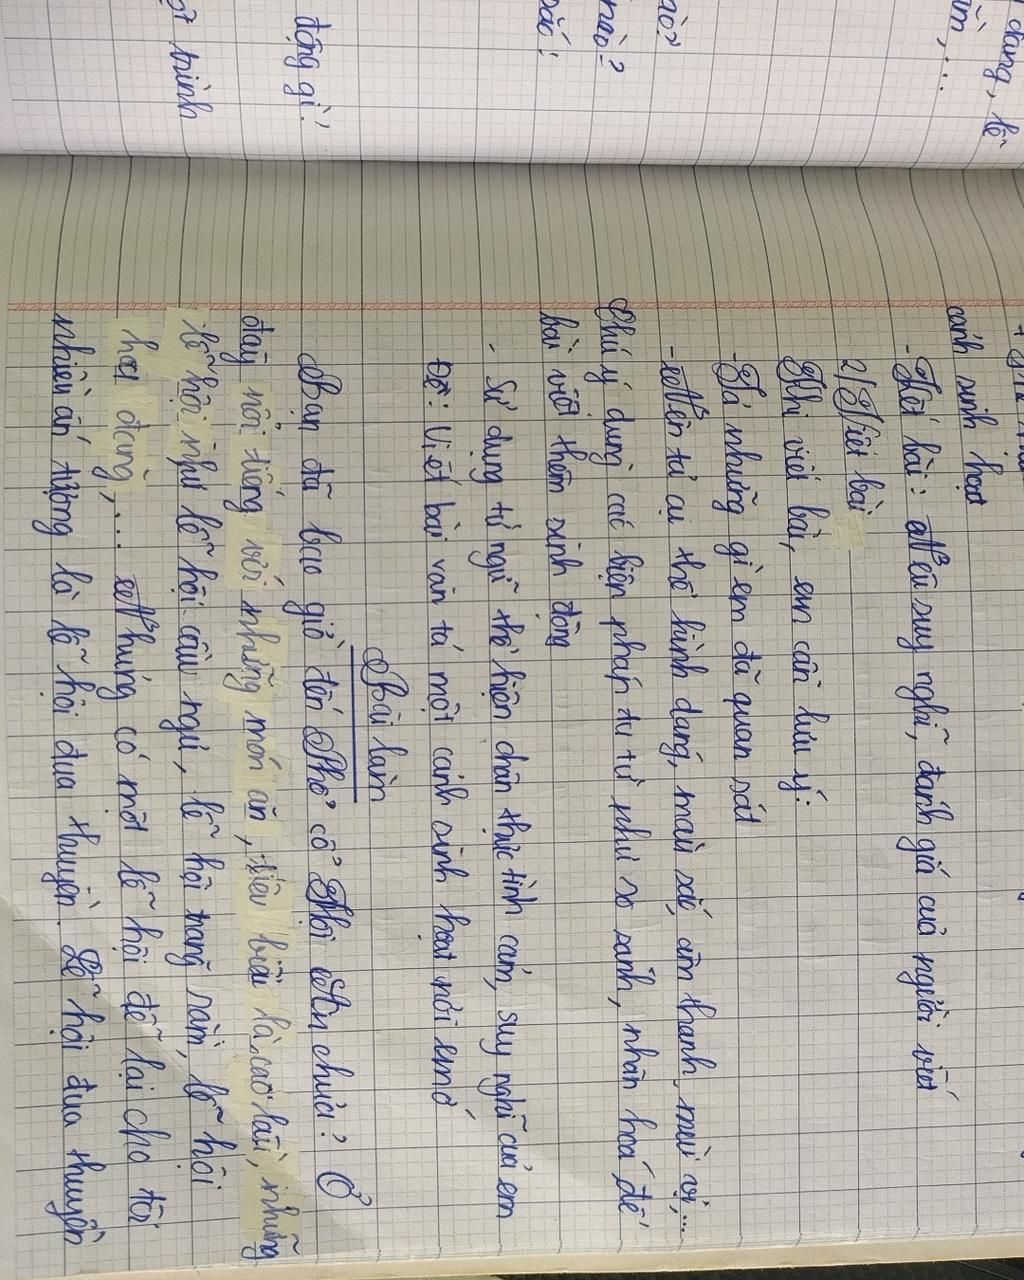 dạng, lễ
ào?
nào?
sắc!
động gì?
cảnh sinh hoạt
- Kết bài: Nêu suy nghĩ, đánh giá của người viết
2/ Viết bài
Khi viết bài, em cần lưu ý:
- Tả những gì em đã quan sát
- Nên tả cụ thể hình dáng, màu sắc, âm thanh, mùi vị,...
Chú ý dùng các biện pháp tu từ như so sánh, nhân hoá để
bài viết thêm sinh động
- Sử dụng từ ngữ thể hiện chân thực tình cảm, suy nghĩ của em
Đề: Viết bài văn tả một cảnh sinh hoạt nơi em ở
Bài làm
Bạn đã bao giờ đến Phố cổ Hội An chưa? Ở
đây nổi tiếng với những món ăn, tiêu biểu là cao lầu, những
lễ hội như lễ hội cầu ngư, lễ hội trăng rằm, lễ hội
hoa đăng,... Nhưng có một lễ hội để lại cho tôi
nhiều ấn tượng là lễ hội đua thuyền. Lễ hội đua thuyền